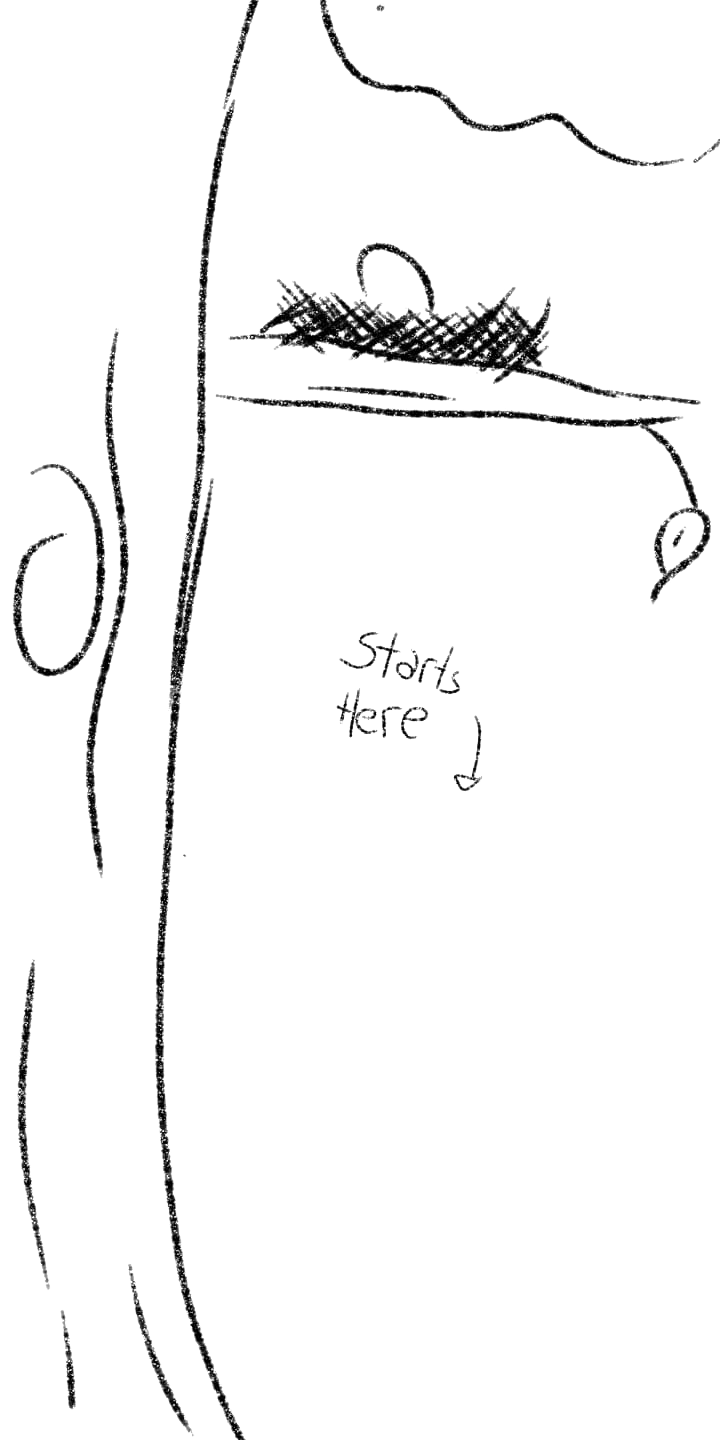 Starts
Here